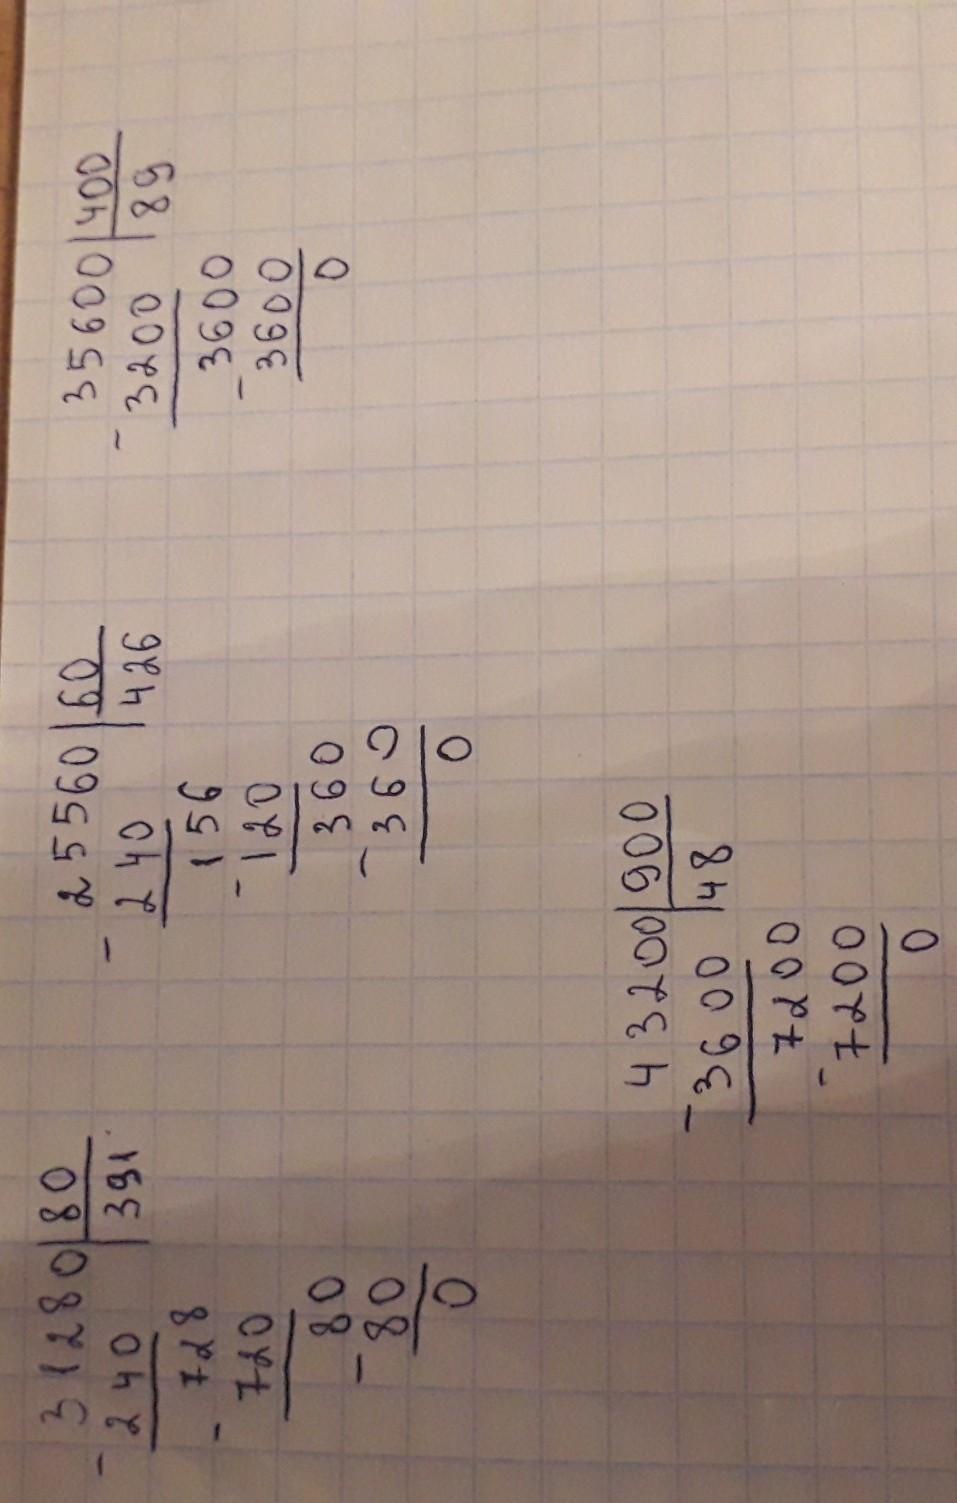 31280|80
- 240 |391
- 728
720
80
- 80
0
25560|60
- 240 |426
156
- 120
360
- 360
0
35600|400
- 3200 |89
3600
- 3600
0
43200|900
- 3600 |48
7200
- 7200
0